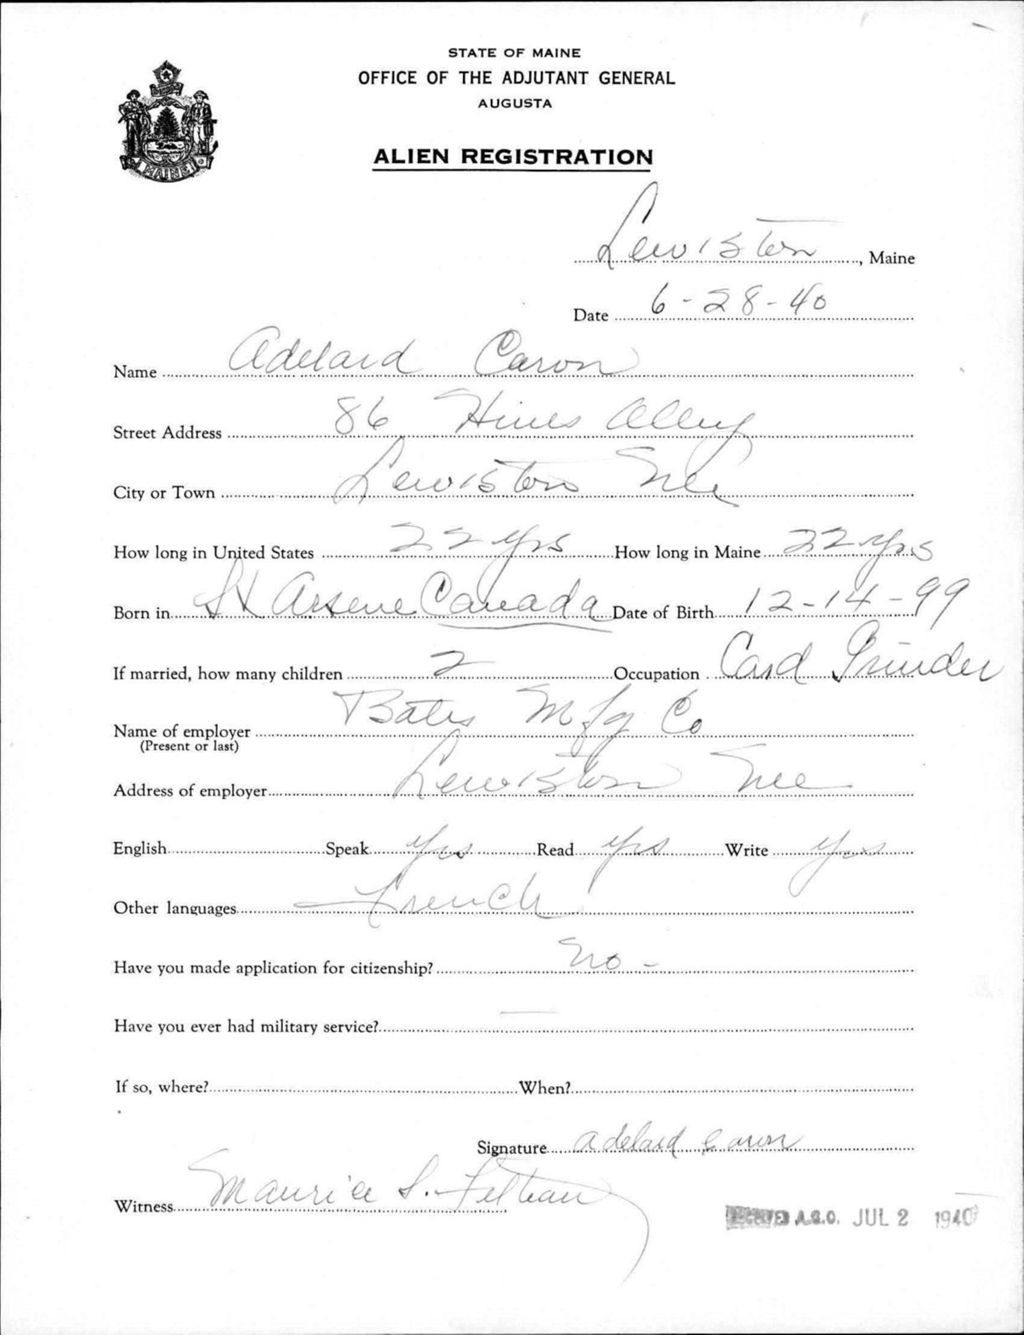 STATE OF MAINE
OFFICE OF THE ADJUTANT GENERAL
AUGUSTA
ALIEN REGISTRATION
MAINE
Lewiston, Maine
Date 6-28-40
Name Adelard Caron
Street Address 86 Hines Alley
City or Town Lewiston Me
How long in United States 22 yrs How long in Maine 22 yrs
Born in St Arsene Canada Date of Birth 12-14-99
If married, how many children 2 Occupation Card Grinder
Name of employer Bates Mfg Co
(Present or last)
Address of employer Lewiston Me
English Speak Yes Read Yes Write Yes
Other languages French
Have you made application for citizenship? No -
Have you ever had military service? —
If so, where? When?
Signature Adelard Caron
Witness Maurice S.
RECEIVED A.G.O. JUL 2 1940